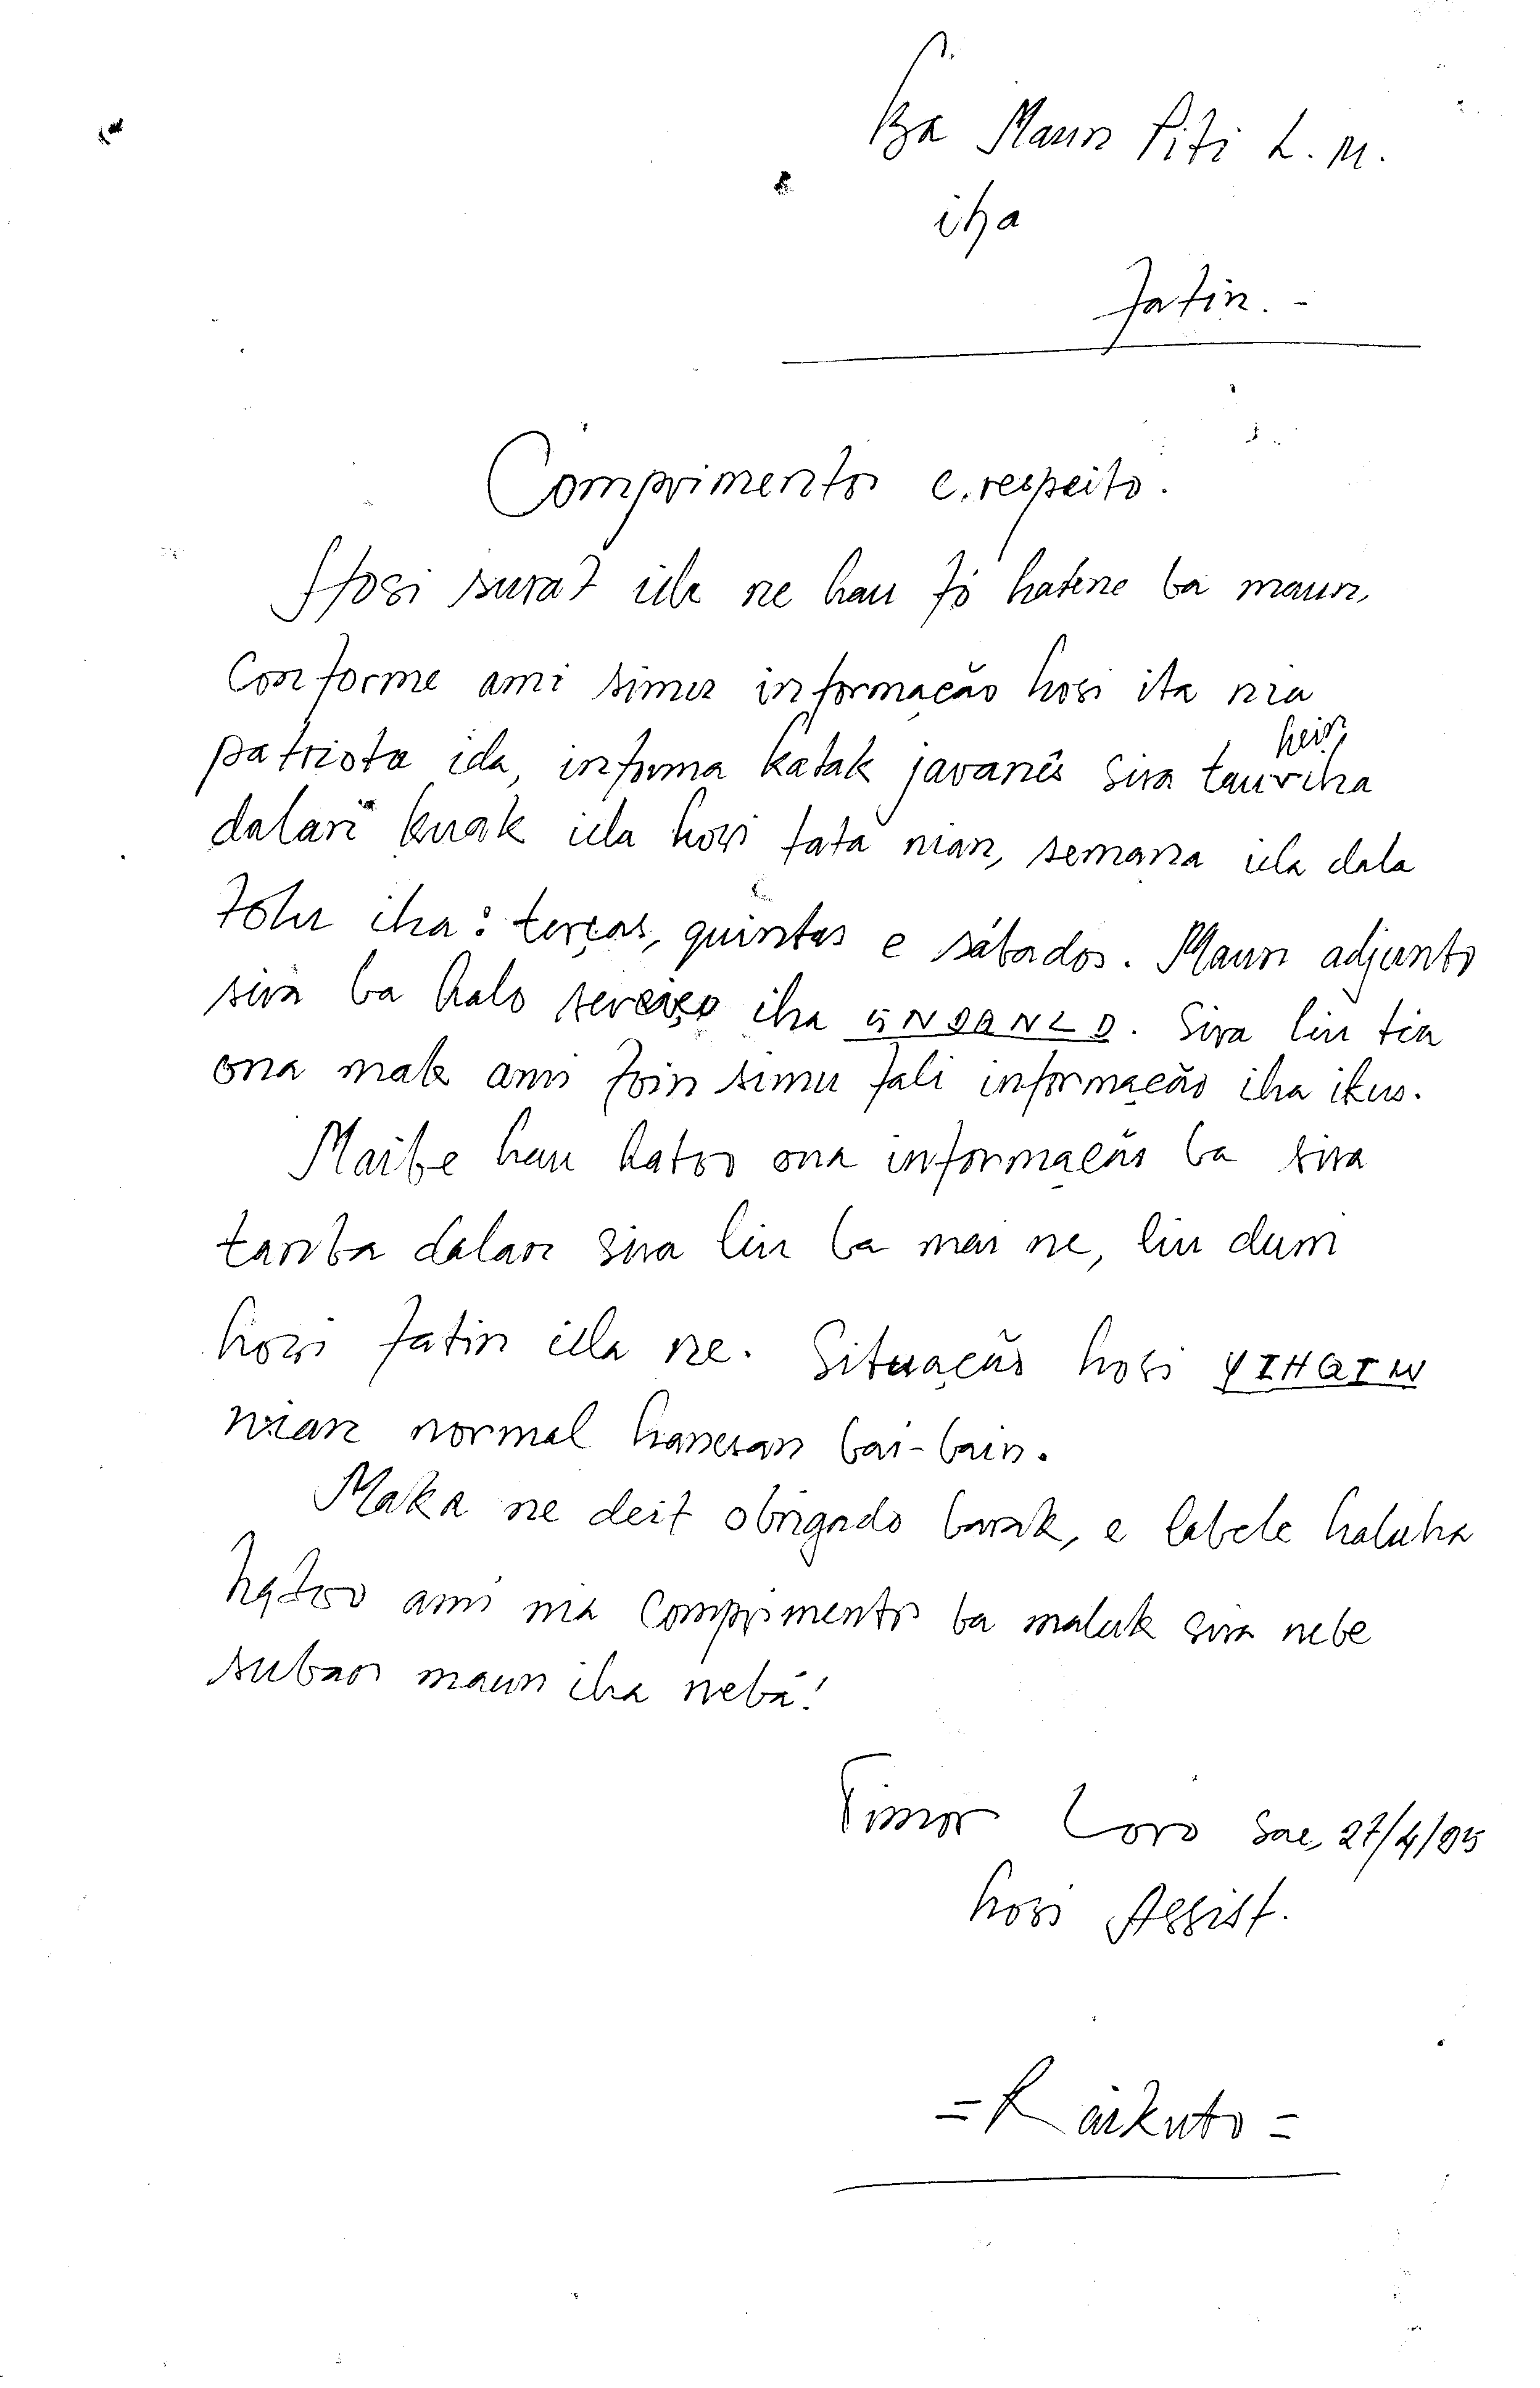 Ba Maun Piti L. M.
iha
fatin. -
Comprimentos e. respeito.
Hosi surat ida ne hau fó hatene ba maun,
Conforme ami simu informação hosi ita nia
patriota ida, informa katak javanês sira tau hein iha
dalan kuak ida hosi fata nian, semana ida dala
tolu iha: terças, quintas e sábados. Maun adjunto
sira ba halo serviço iha. Sira liu tia
ona mak ami foin simu fali informação iha ikus.
Maibe hau hatoo ona informação ba sira
tanba dalan sira liu ba mai ne, liu dum
hosi fatin ida ne. Situação hosi
nian normal hanesan bai-bain.
Maka ne deit obrigado barak, e labele haluha
hatoo ami nia comprimentos ba maluk sira nebe
maun iha nebá!
Timor Loro Sae, 27/4/95
hosi Assist.
= Raikuto =